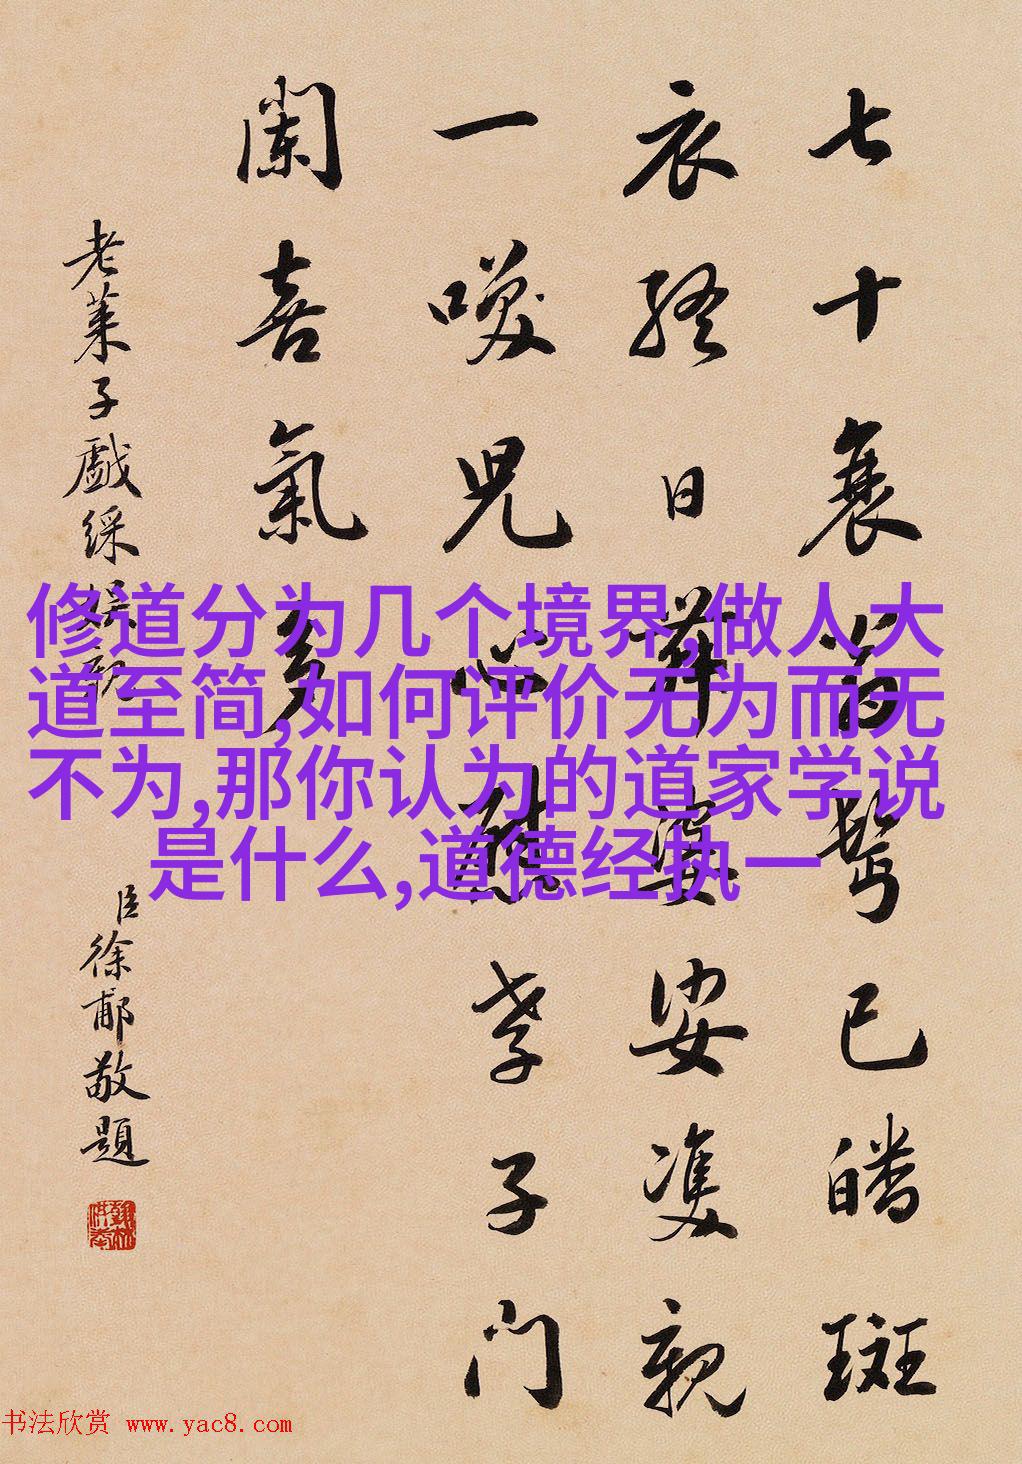 七十衰翁鬓已皤斑
衣终日舞婆娑双亲
一哭儿心慰孝子门
阑喜氣多
老莱子戲綵娱親
臣徐郙敬題
修道分为几个境界,做人大
道至简,如何评价无为而无
不为,那你认为的道家学说
是什么,道德经执一
书法欣赏 www.yac8.com